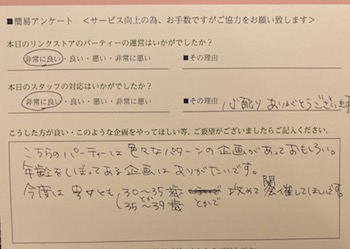 ■簡易アンケート ＜サービス向上の為、お手数ですがご協力をお願い致します＞
本日のリンクストアのパーティーの運営はいかがでしたか？
非常に良い・良い・悪い・非常に悪い ■その理由
本日のスタッフの対応はいかがでしたか？
非常に良い・良い・悪い・非常に悪い ■その理由 心配り ありがとうございます
こうした方が良い・このような企画をやってほしい等、ご要望がございましたらご記入ください。
こちらのパーティーは色々なパターンの企画があっておもしろい。
年齢をしぼってある企画はありがたいです。
今度は 男女とも、30〜35歳 攻めて 開催してほしいです。
とか
(35〜39歳 とかで